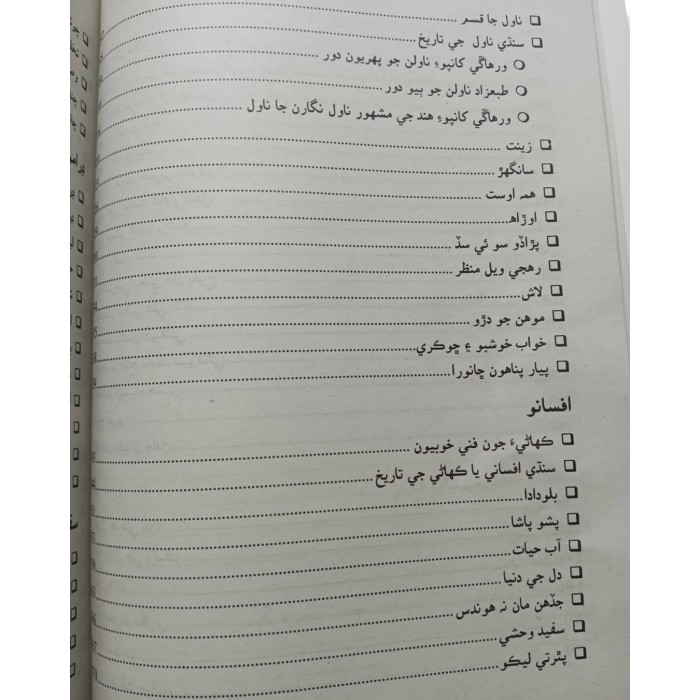 ناول جا قسم
سنڌي ناول جي تاريخ
ورهاڱي کانپوءِ ناولن جو پهريون دور
طبعزاد ناولن جو ٻيو دور
ورهاڱي کانپوءِ هند جي مشهور ناول نگارن جا ناول
زينت
سانگهڙ
همه اوست
اوڙاه
پڙاڏو سو ئي سڏ
رهجي ويل منظر
لاش
موهن جو دڙو
خواب خوشبو ۽ ڇوڪري
پيار پناهون ڇانورا
افسانو
ڪهاڻيءَ جون فني خوبيون
سنڌي افساني يا ڪهاڻي جي تاريخ
بلودادا
پشو پاشا
آب حيات
دل جي دنيا
جڏهن مان نه هوندس
سفيد وحشي
پٿرتي ليڪو